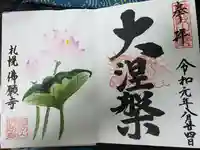 奉拝
大涅槃
令和元年八月廿四日
札幌 佛願寺